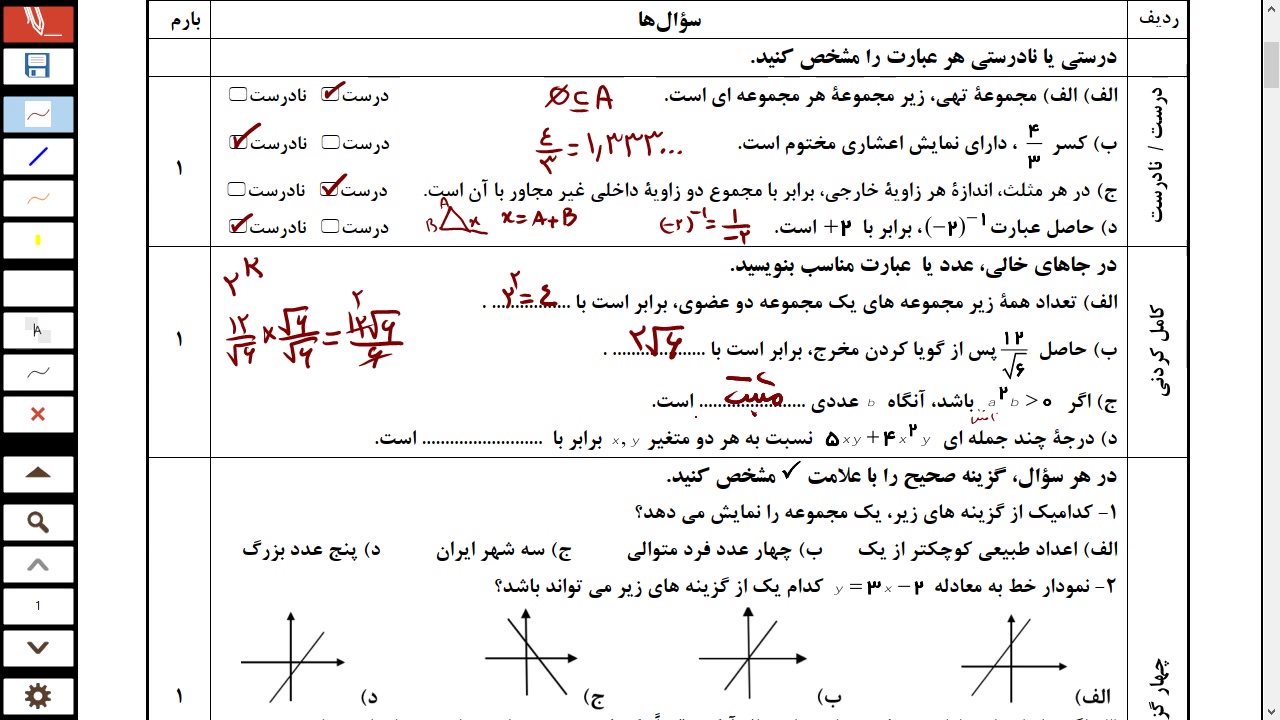 ردیف سؤال‌ها بارم
درستی یا نادرستی هر عبارت را مشخص کنید.
درست / نادرست
الف) الف) مجموعهٔ تهی، زیر مجموعهٔ هر مجموعه ای است. ∅⊆A درست ✓ نادرست
ب) کسر ۴/۳ ، دارای نمایش اعشاری مختوم است. ۴/۳ = ۱,۳۳۳... درست نادرست ✓
۱
ج) در هر مثلث، اندازهٔ هر زاویهٔ خارجی، برابر با مجموع دو زاویهٔ داخلی غیر مجاور با آن است. درست ✓ نادرست
د) حاصل عبارت (−۲)^−۱، برابر با +۲ است. (−۲)^−۱ = ۱/−۲ A B x x = A+B درست نادرست ✓
کامل کردنی
در جاهای خالی، عدد یا عبارت مناسب بنویسید.
۲^K
الف) تعداد همهٔ زیر مجموعه های یک مجموعه دو عضوی، برابر است با ۲^۲=۴ ................ .
۱۲/√۶ × √۶/√۶ = ۱۲√۶/۶ ۲
۱
ب) حاصل ۱۲/√۶ پس از گویا کردن مخرج، برابر است با ۲√۶ ................... .
ج) اگر a^۲b > ۰ باشد، آنگاه b عددی مثبت ...................... است.
د) درجهٔ چند جمله ای ۵xy+۴x^۲y نسبت به هر دو متغیر x,y برابر با ......................... است.
در هر سؤال، گزینه صحیح را با علامت ✓ مشخص کنید.
۱- کدامیک از گزینه های زیر، یک مجموعه را نمایش می دهد؟
الف) اعداد طبیعی کوچکتر از یک ب) چهار عدد فرد متوالی ج) سه شهر ایران د) پنج عدد بزرگ
۲- نمودار خط به معادله y=۳x−۲ کدام یک از گزینه های زیر می تواند باشد؟
الف) ب) ج) د)
۱
چهار گز
A
1